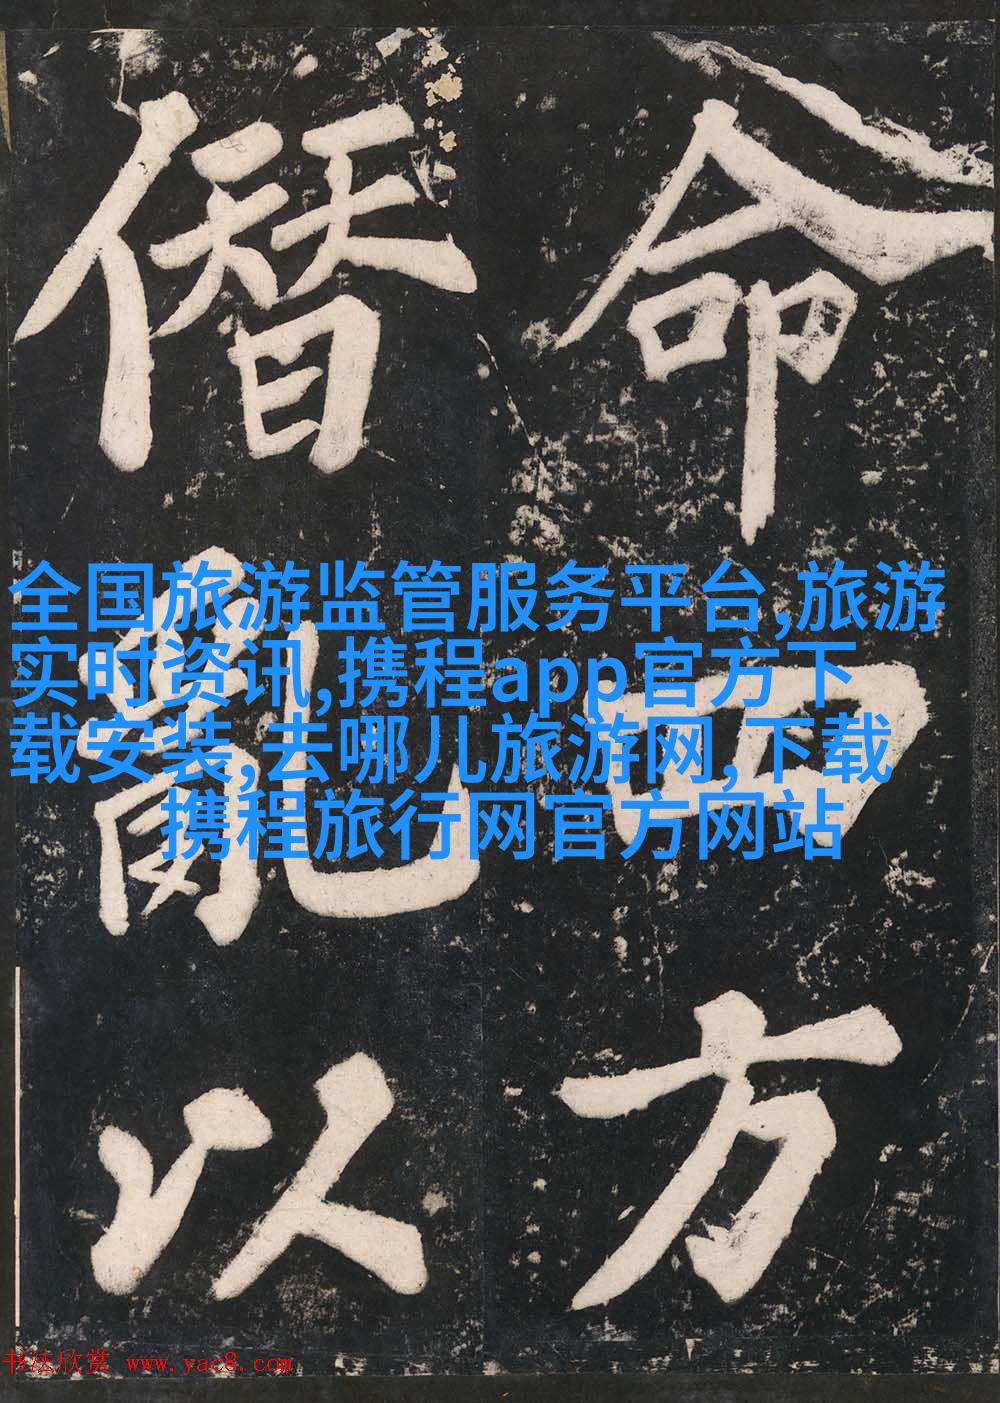 命四方
僭亂以
全国旅游监管服务平台,旅游
实时资讯,携程app官方下
载安装,去哪儿旅游网,下载
携程旅行网官方网站
书法欣赏 www.yac8.com